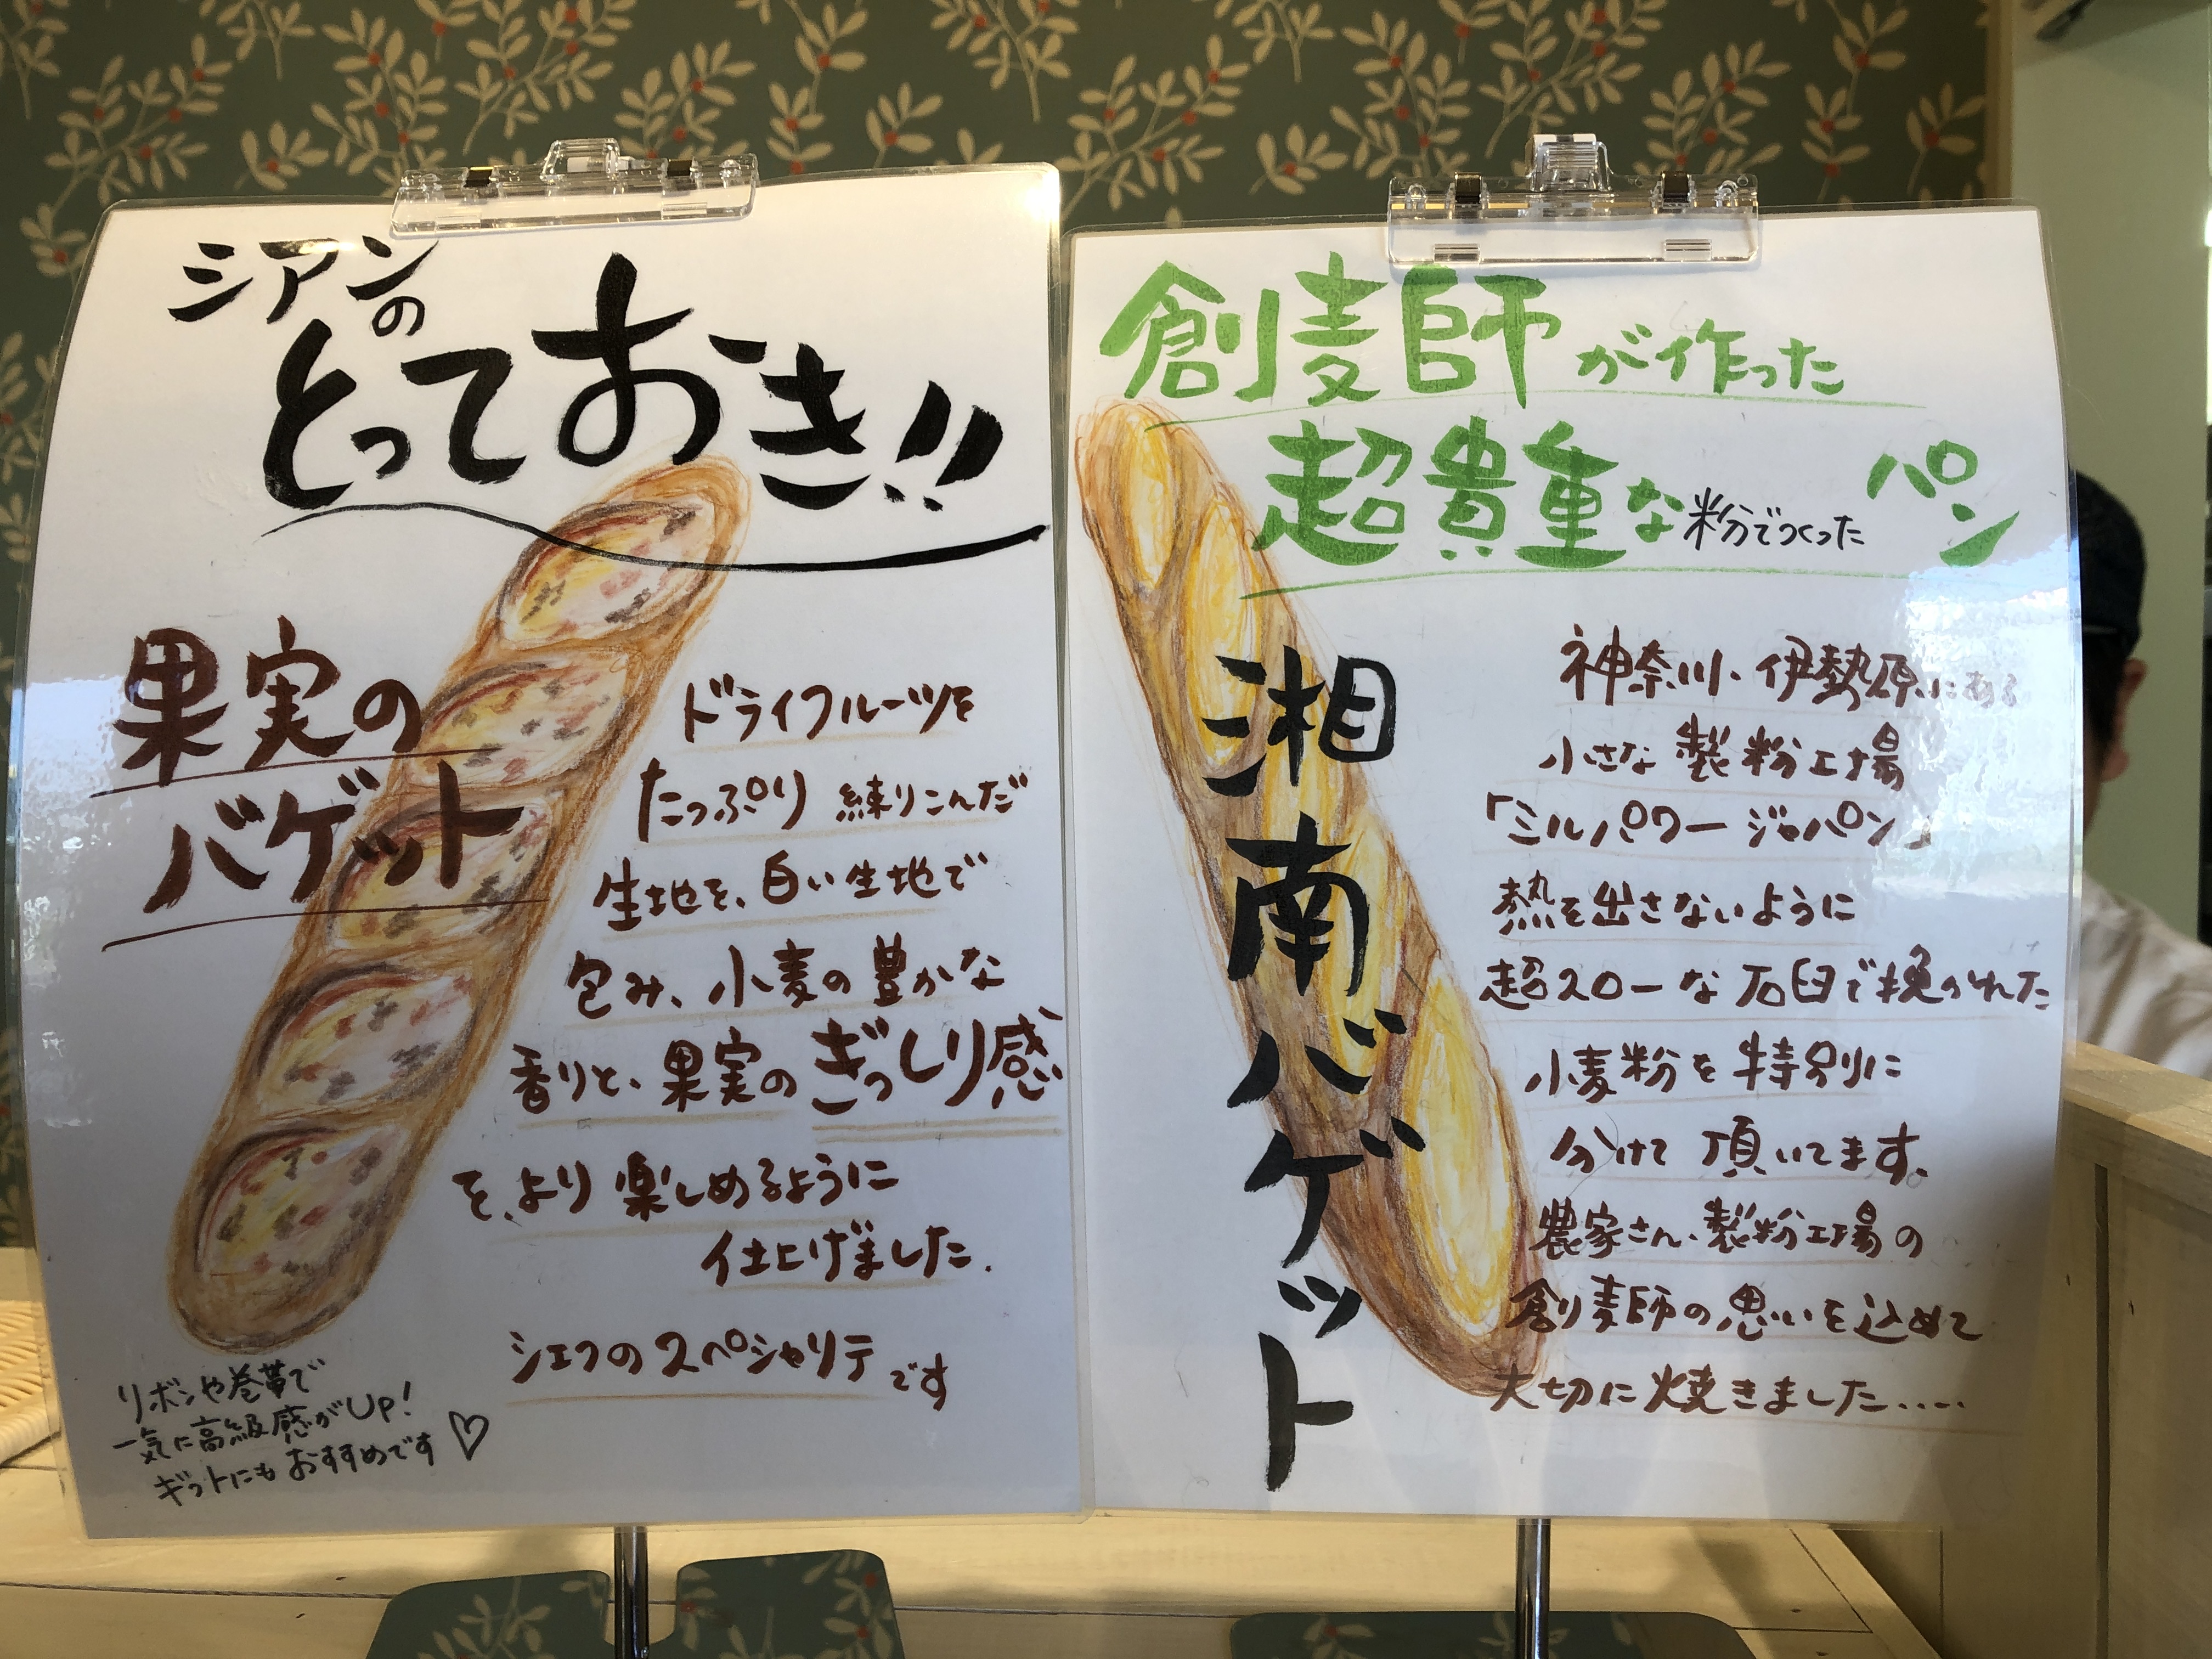 シアンの
とっておき!!
果実の
バゲット
ドライフルーツを
たっぷり 練りこんだ
生地を、白い生地で
包み、小麦の豊かな
香りと、果実のぎっしり感
を、より楽しめるように
仕上げました.
シェフのスペシャリテです
リボンや巻帯で
一気に高級感がUp!
ギフトにもおすすめです♡
創麦師が作った
超貴重な粉でつくったパン
湘南バゲット
神奈川、伊勢原にある
小さな製粉工場
「ミルパワージャパン」
熱を出さないように
超スローな石臼で挽かれた
小麦粉を特別に
分けて頂いてます。
農家さん、製粉工場の
創麦師の思いを込めて
大切に焼きました.....